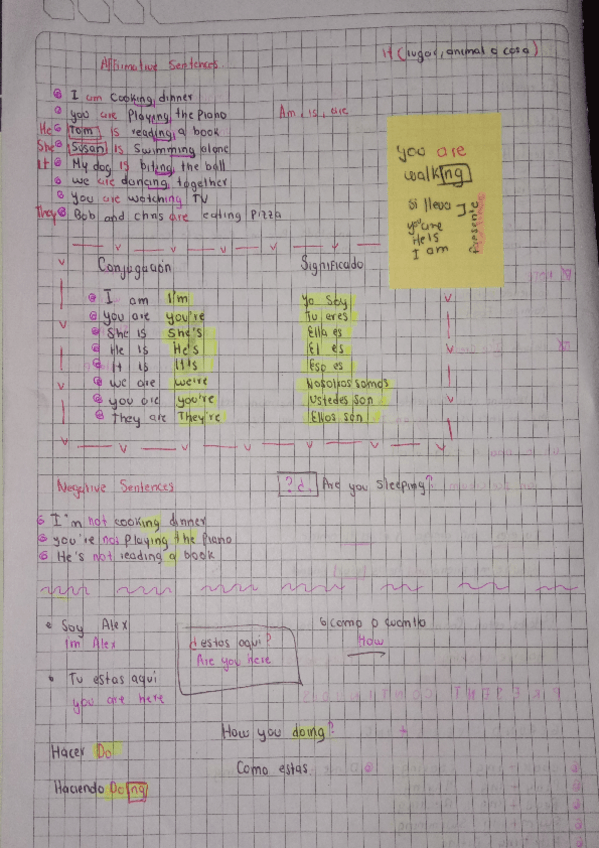 Affirmative Sentences
It (lugar, animal o cosa)
I am Cooking dinner
you are Playing the Piano
Am, is, are
He Tom is reading a book
She Susan is Swimming alone
It My dog is biting the ball
we are dancing together
you are watching TV
They Bob and chris are eating Pizza
you are
walking
si lleva
you are
He is
I am
Presente
Conjugación Significado
I am I'm Yo Soy
you are you're Tu eres
She is She's Ella es
He is He's El es
It is It's Eso es
we are we're Nosotros somos
you are you're Ustedes son
They are They're Ellos son
Negative Sentences
?¿ Are you Sleeping?
I'm not cooking dinner
you're not Playing the Piano
He's not reading a book
Soy Alex
Im Alex
¿estas aqui?
Are you here
como o cuanto
How
Tu estas aqui
you are here
How you doing?
Hacer Do
Como estas
Haciendo Doing